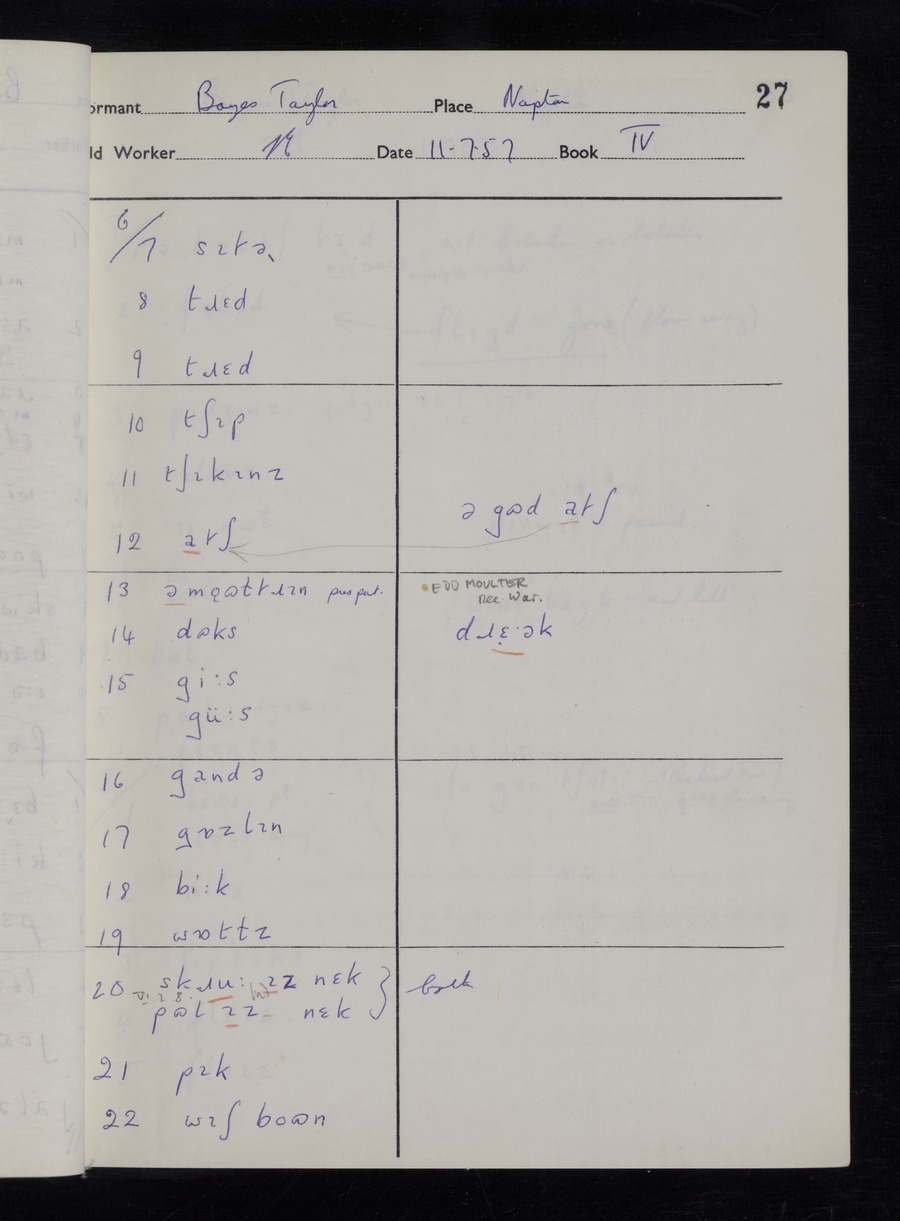 27
ormant Bayes Taylor Place Napton
ld Worker Date 11-7-57 Book IV
6/7 sɪtə
8 tɹɛd
9 tɹɛd
10 tʃɪp
11 tʃɪkɪnz
ə gɷd atʃ
12 atʃ
13 ə mɷʊtɹɪn pres part.
• EDD MOULTER
rec. War.
14 dɒks
dɹɛ·ək
15 gi:s
gü:s
16 gandə
17 gɒzlɪn
18 bi:k
19 wɒttz
20 skɹu: ɪz nɛk } both
VI.2.8.
pɷl ɪz nɛk
21 pɪk
22 wɪʃ boɷn